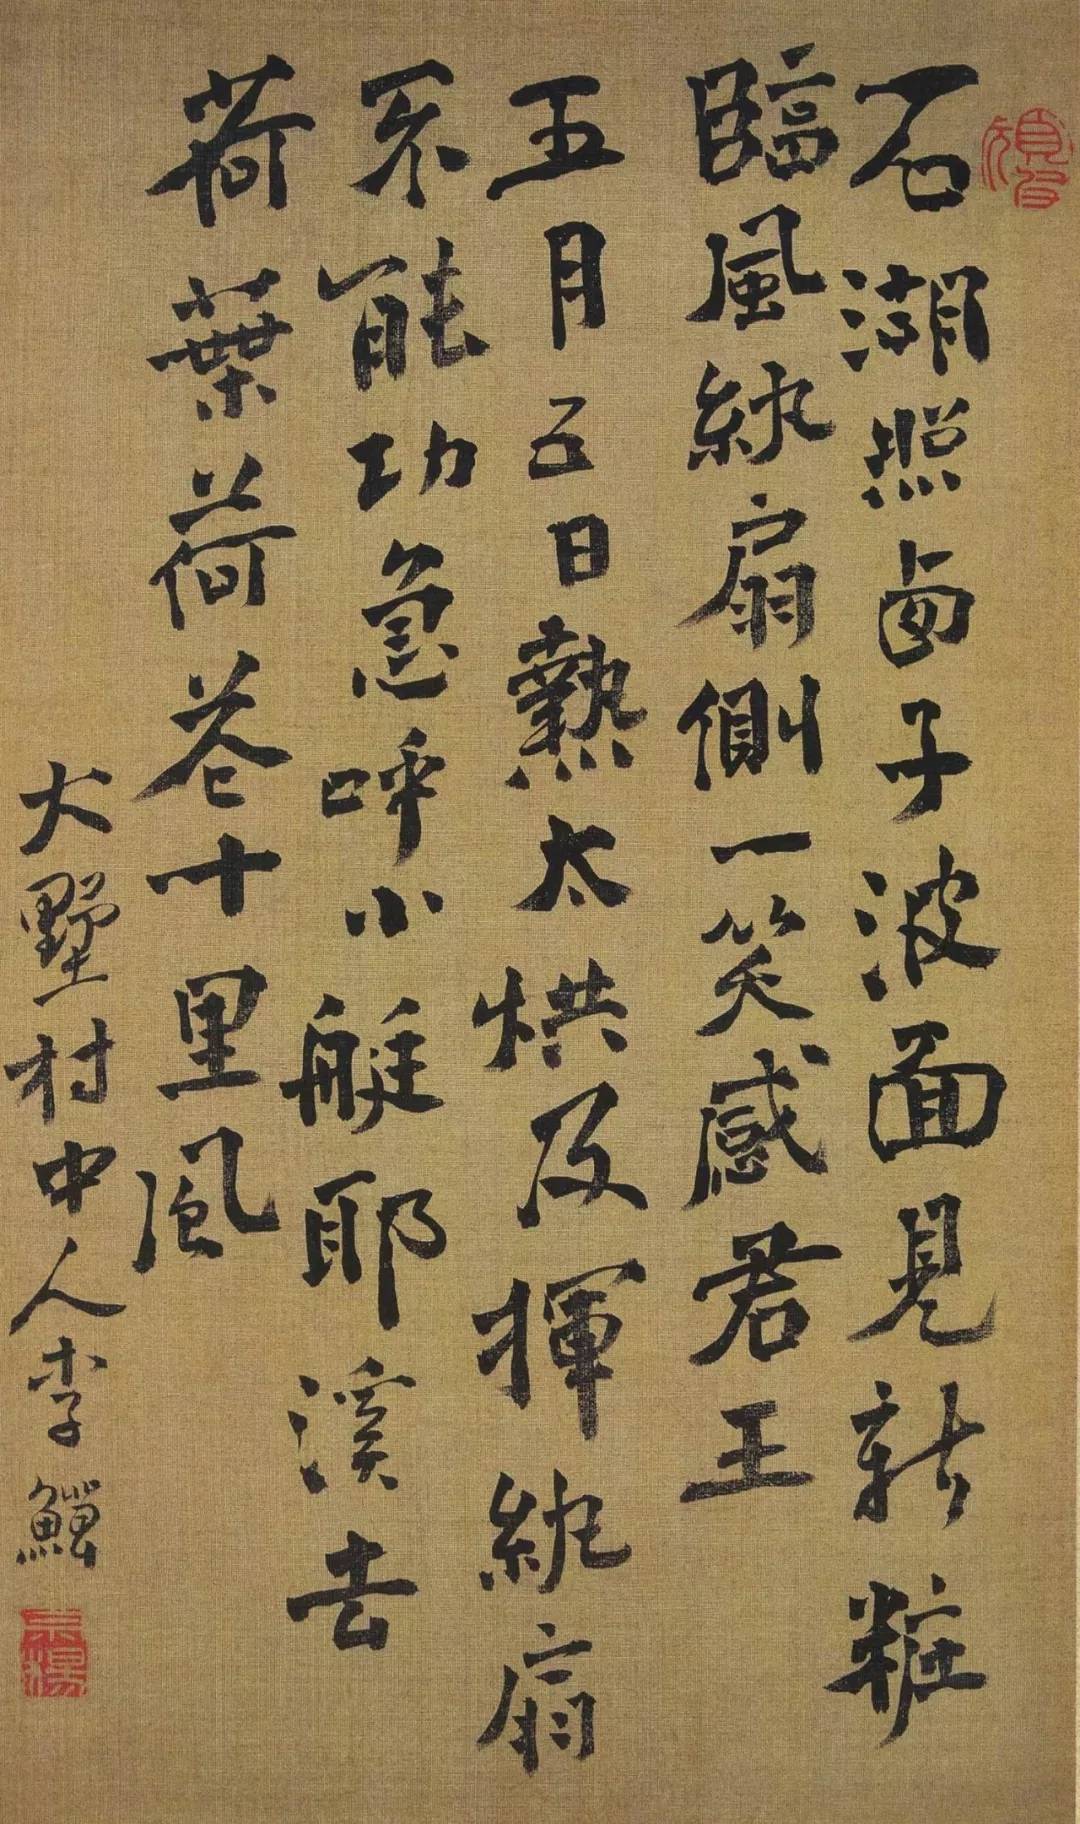 石湖照卤子波面見新粧
臨風紈扇側一笑感君王
五月五日熱太烘及揮紈扇
不能功急呼小艇耶溪去
荷葉荷花十里風
大墅村中人李鱓